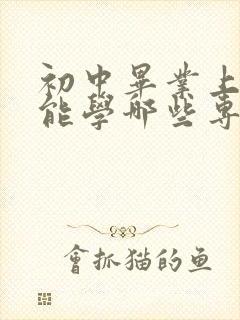 初中畢業上
能學哪些專
會抓猫的鱼